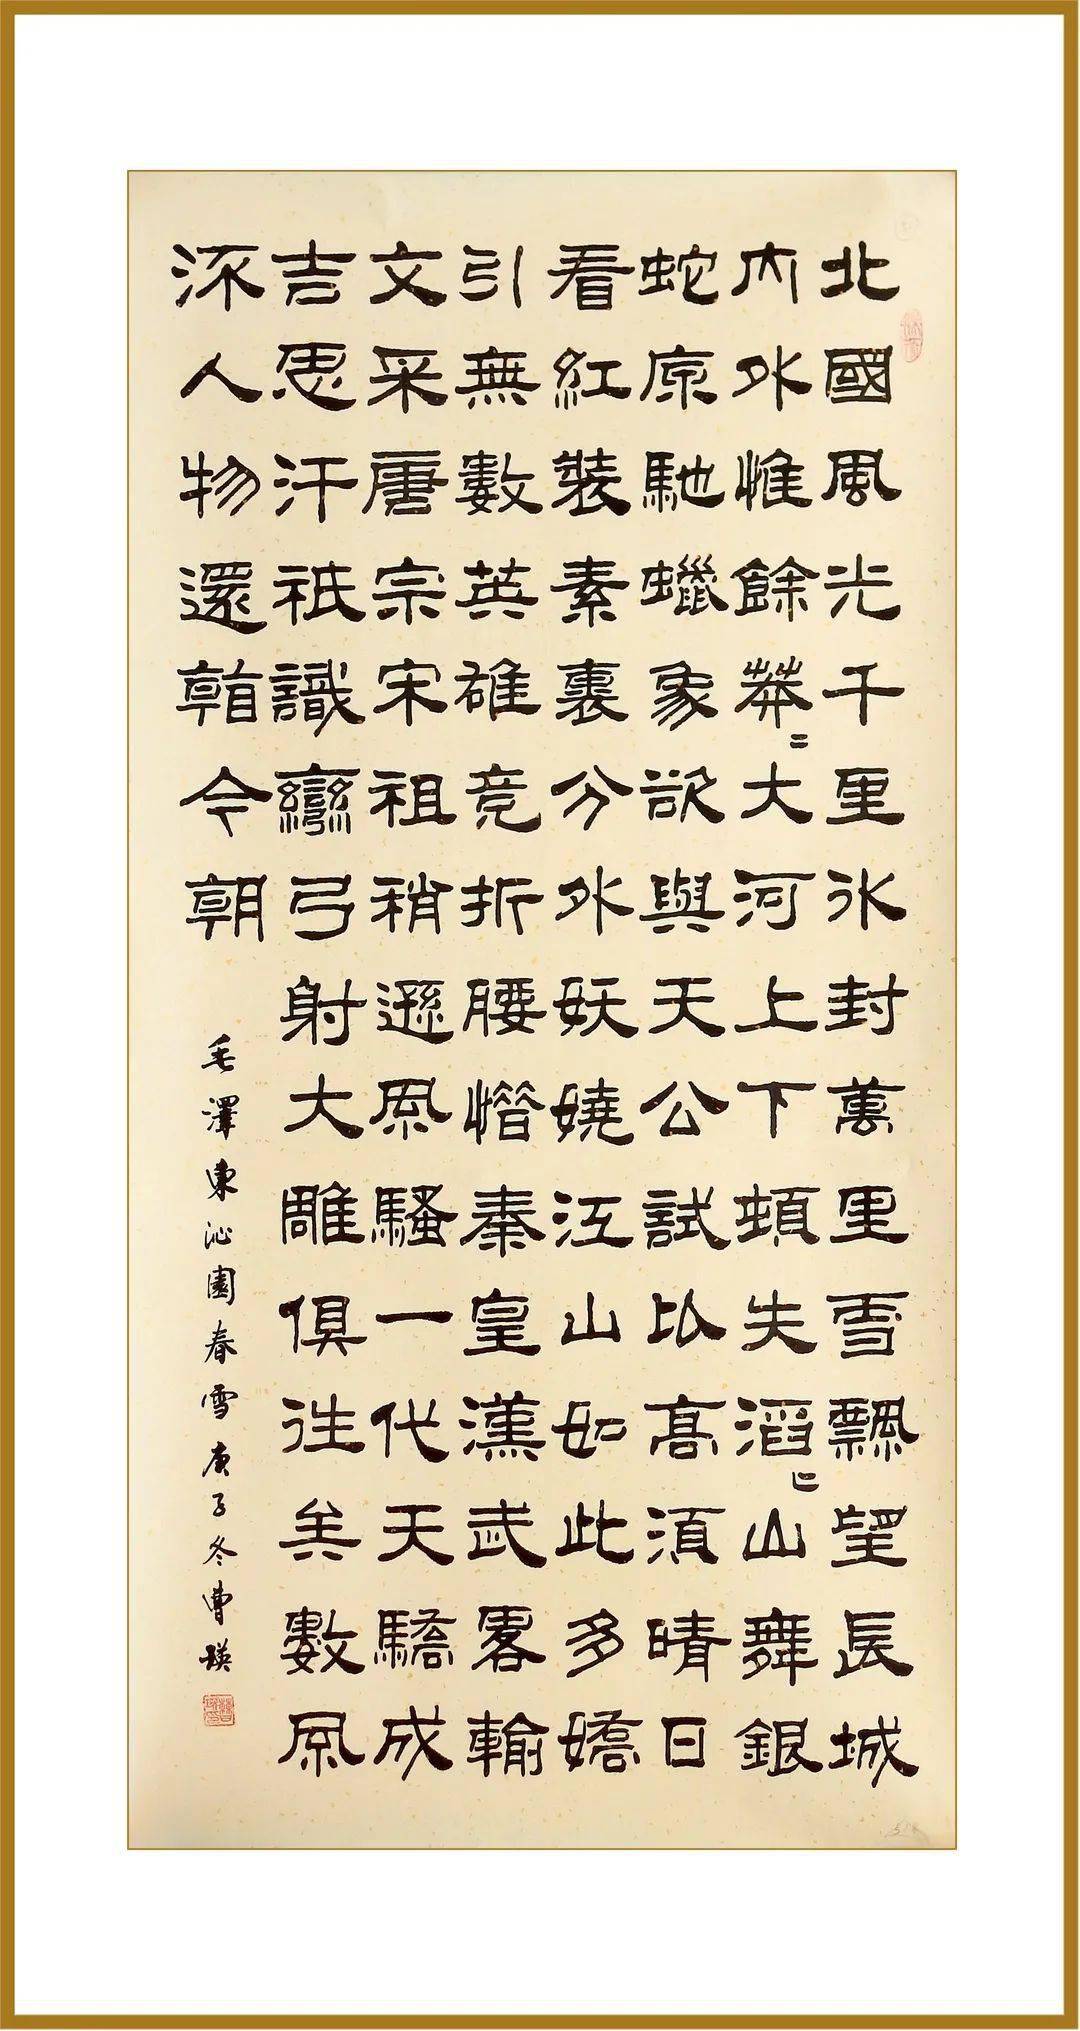 北國風光千里冰封萬里雪飄望長城
內外惟餘莽〻大河上下頓失滔〻山舞銀
蛇原馳蠟象欲與天公試比高須晴日
看紅裝素裹分外妖嬈江山如此多嬌
引無數英雄竞折腰惜秦皇漢武畧輸
文采唐宗宋祖稍遜風騷一代天驕成
吉思汗祇識彎弓射大雕俱往矣數風
流人物還看今朝
毛澤東沁園春雪庚子冬曹瑛